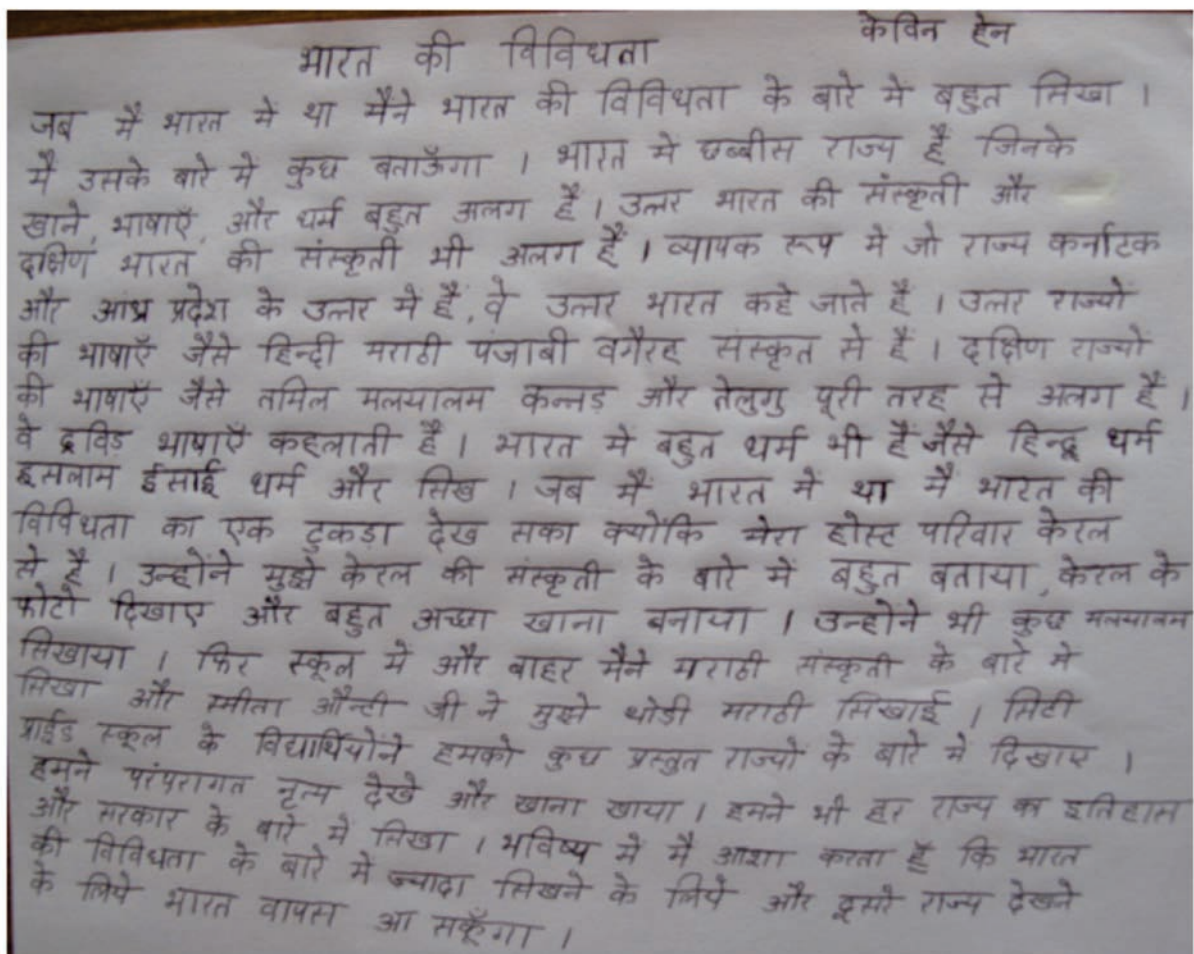 केविन हेन
भारत की विविधता
जब मै भारत मे था मैने भारत की विविधता के बारे मे बहुत सिखा ।
मै उसके बारे मे कुछ बताऊँगा । भारत मे छब्बीस राज्य हैं जिनके
खाने, भाषाएँ, और धर्म बहुत अलग हैं । उत्तर भारत की संस्कृती और
दक्षिण भारत की संस्कृती भी अलग हैं । व्यापक रूप मे जो राज्य कर्नाटक
और आंध्र प्रदेश के उत्तर में हैं, वे उत्तर भारत कहे जाते हैं । उत्तर राज्यों
की भाषाएँ जैसे हिन्दी मराठी पंजाबी वगैरह संस्कृत से हैं । दक्षिण राज्यो
की भाषाएँ जैसे तमिल मलयालम कन्नड़ और तेलुगु पूरी तरह से अलग हैं ।
वे द्रविड़ भाषाएँ कहलाती हैं । भारत मे बहुत धर्म भी हैं जैसे हिन्दू धर्म
इसलाम ईसाई धर्म और सिख । जब मैं भारत में था मैं भारत की
विविधता का एक टुकड़ा देख सका क्योंकि मेरा होस्ट परिवार केरल
से है । उन्होंने मुझे केरल की संस्कृती के बारे में बहुत बताया, केरल के
फोटो दिखाए और बहुत अच्छा खाना बनाया । उन्होने भी कुछ मलयालम
सिखाया । फिर स्कूल मे और बाहर मैने मराठी संस्कृती के बारे मे
सिखा और स्मीता औन्टी जी ने मुझे थोडी मराठी सिखाई । सिटी
प्राईड स्कूल के विद्यार्थियोंने हमको कुछ प्रस्तुत राज्यो के बारे मे दिखाए ।
हमने परंपरागत नृत्य देखे और खाना खाया । हमने भी हर राज्य का इतिहास
और सरकार के बारे में सिखा । भविष्य में मै आशा करता हूँ कि भारत
की विविधता के बारे में ज्यादा सिखने के लिये और दूसरे राज्य देखने
के लिये भारत वापस आ सकूँगा ।